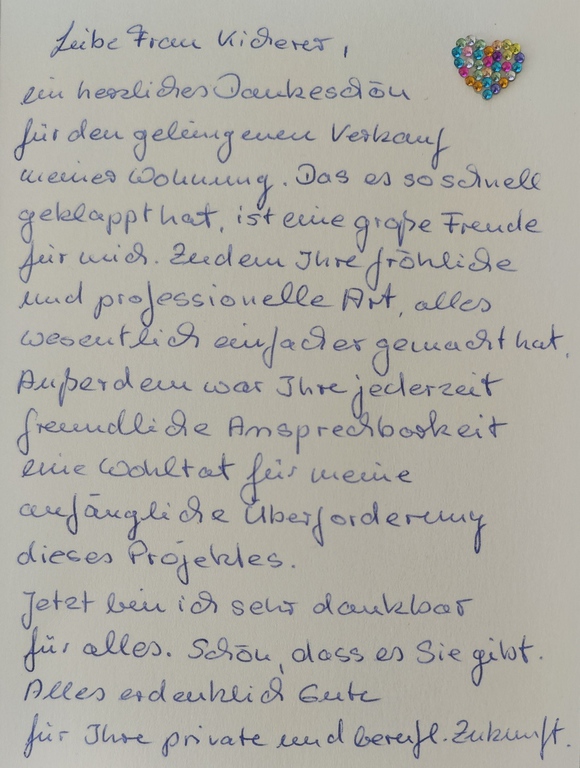 Liebe Frau Kicherer,
ein herzliches Dankeschön
für den gelungenen Verkauf
meiner Wohnung. Das es so schnell
geklappt hat, ist eine große Freude
für mich. Zudem Ihre fröhliche
und professionelle Art, alles
wesentlich einfacher gemacht hat.
Außerdem war Ihre jederzeit
freundliche Ansprechbarkeit
eine Wohltat für meine
anfängliche Überforderung
dieses Projektes.
Jetzt bin ich sehr dankbar
für alles. Schön, dass es Sie gibt.
Alles erdenklich Gute
für Ihre private und berufl. Zukunft.